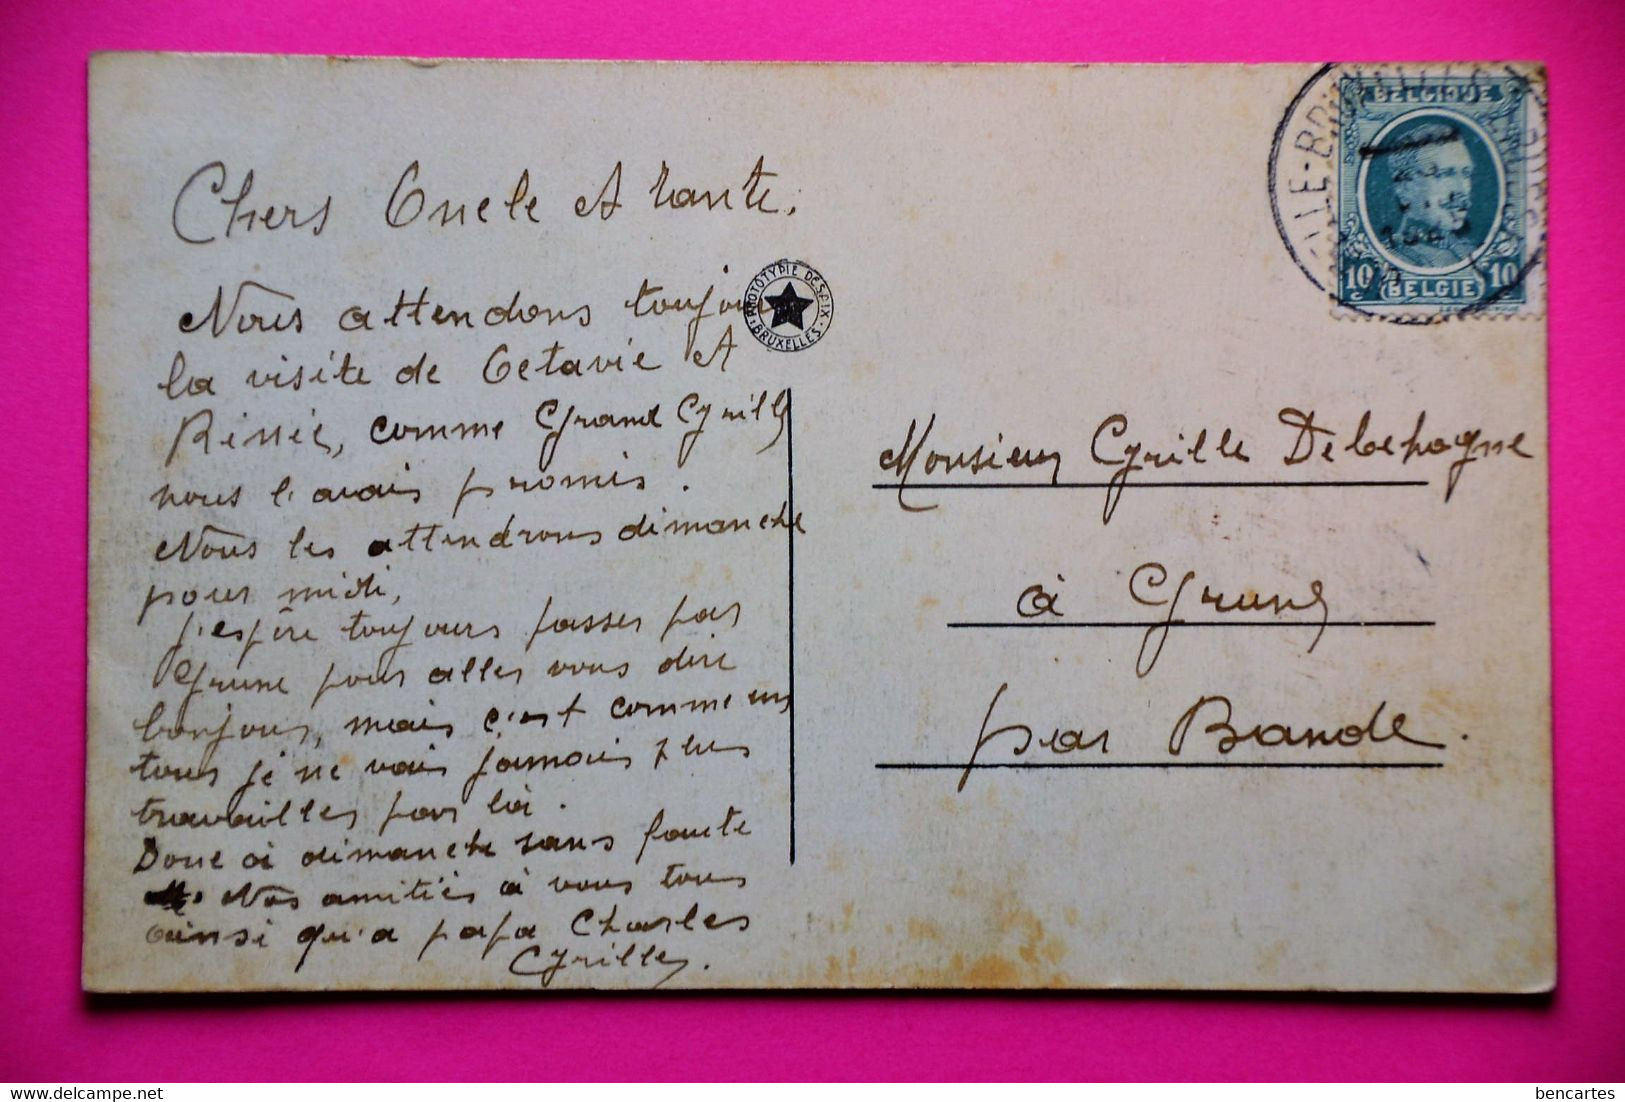 Chers Oncle et Tante,
Nous attendons toujours
la visite de Octavie et
Rénée, comme Grand Cyrille
nous l'avais promis.
Nous les attendrons dimanche
pour midi,
j'espère toujours passer par
Grune pour aller vous dire
bonjour, mais c'est comme un
tour je ne vais jamais plus
travailler par là.
Donc à dimanche sans faute
Nos amitiés à vous tous
ainsi qu'a papa Charles
Cyrille.
PHOTOTYPIE DESAIX
BRUXELLES
BELGIQUE
10 c BELGIE 10 c
Monsieur Cyrille
à Grune
par Bande.
delcampe.net
bencartes